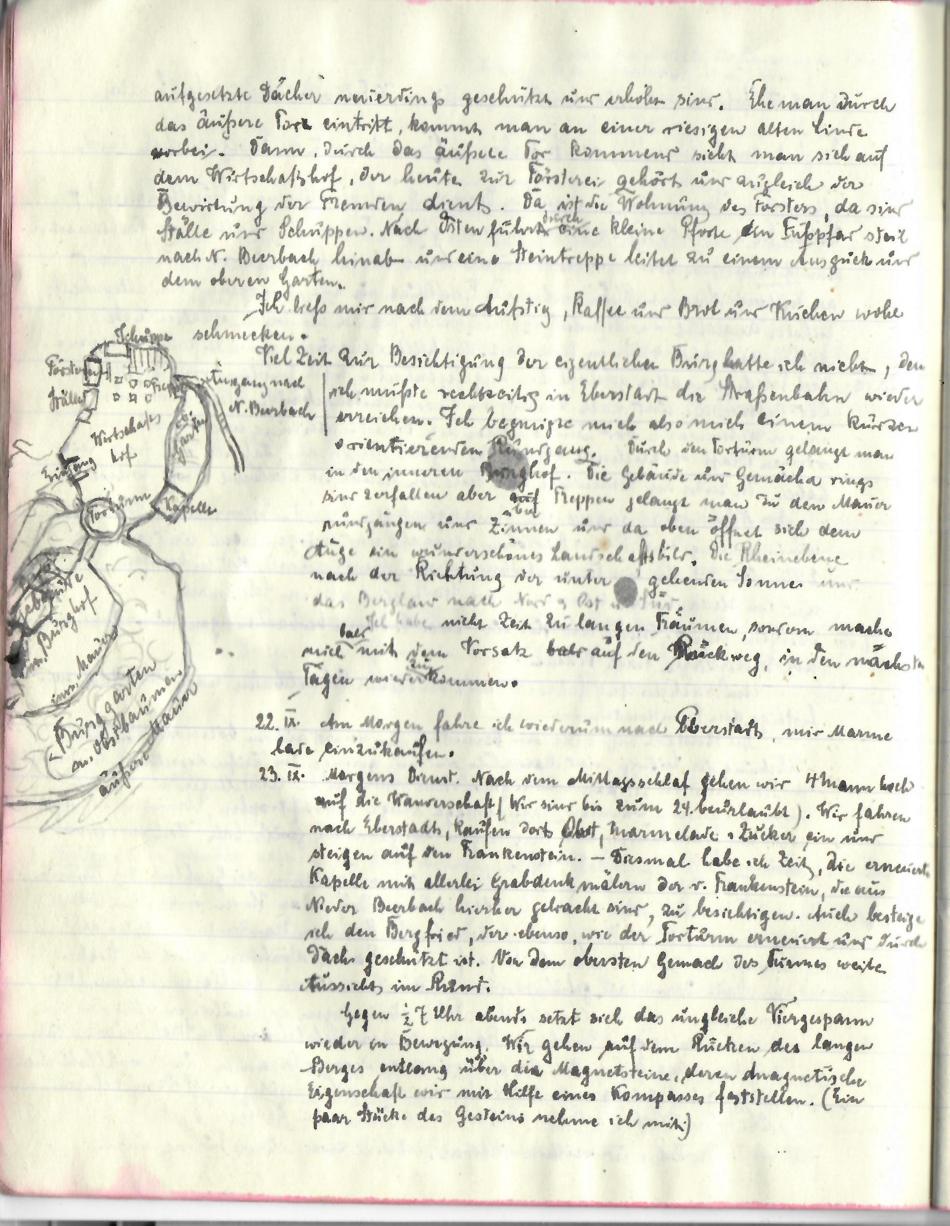 aufgesetzte Dächer neuerdings geschützt und erhöht sind. Ehe man durch
das äußere Tor eintritt, kommt man an einer riesigen alten Linde
vorbei. Dann, durch das äußere Tor kommend sieht man sich auf
dem Wirtschaftshof, der heute zur Försterei gehört und zugleich der
Bewirtung der Fremden dient. Da ist die Wohnung des Försters, da sind
Ställe und Schuppen. Nach Osten führt durch eine kleine Pforte ein Fußpfad steil
nach N. Beerbach hinab und eine Steintreppe leitet zu einem Ausguck und
dem oberen Garten.
Ich ließ mir nach dem Aufstieg, Kaffee und Brot und Kuchen wohl
schmecken.
Viel Zeit zur Besichtigung der eigentlichen Burg hatte ich nicht, denn
ich müßte rechtzeitig in Eberstadt die Straßenbahn wieder
erreichen. Ich begnügte mich also mit einem kurzen
orientierenden Rundgang. Durch den Torturm gelangt man
in den inneren Burghof. Die Gebäude und Gemächer rings
sind zerfallen aber auf Treppen gelangt man zu den Mauer
rundgängen und Zinnen und da oben öffnet sich dem
Auge ein wunderschönes Landschaftsbild. Die Rheinebene
nach der Richtung der unter gehenden Sonne und
das Bergland nach Nord Ost u Süd.
Ich habe nicht Zeit zu langen Träumen, sondern mache
mich bald mit dem Vorsatz bald auf den Rückweg, in den nächsten
Tagen wieder zu kommen.
Schuppen
Försterei
Ställe
Ausgang nach
N. Beerbach
Wirtschafts
hof
Garten
Eingang
Torturm
Kapelle
Gebäude
inn. Burghof
inn. Mauer
Burggarten
(m. Obstbäumen
äußere Mauer
22. IX. Am Morgen fahre ich wiederum nach Eberstadt, mir Marme
lade einzukaufen.
23. IX. Morgens Dienst. Nach dem Mittagsschlaf gehen wir 4 Mann hoch
auf die Wanderschaft (Wir sind bis zum 24. beurlaubt). Wir fahren
nach Eberstadt, kaufen dort Obst, Marmelade u Zucker ein und
steigen auf den Frankenstein. – Diesmal habe ich Zeit, die erneuerte
Kapelle mit allerlei Grabdenkmälern der v. Frankenstein, die aus
Nieder Beerbach hierher gebracht sind, zu besichtigen. Auch besteige
ich den Bergfried, der ebenso, wie der Torturm erneuert und durch
Dach geschützt ist. Von dem obersten Gemach des Turmes weite
Aussicht im Rund.
Gegen ½ 7 Uhr abends setzt sich das ungleiche Viergespann
wieder in Bewegung. Wir gehen auf dem Rücken des langen
Berges entlang über die Magnetsteine, deren magnetische
Eigenschaft wir mit Hilfe eines Kompasses feststellen. (Ein
paar Stücke des Gesteins nehme ich mit.)